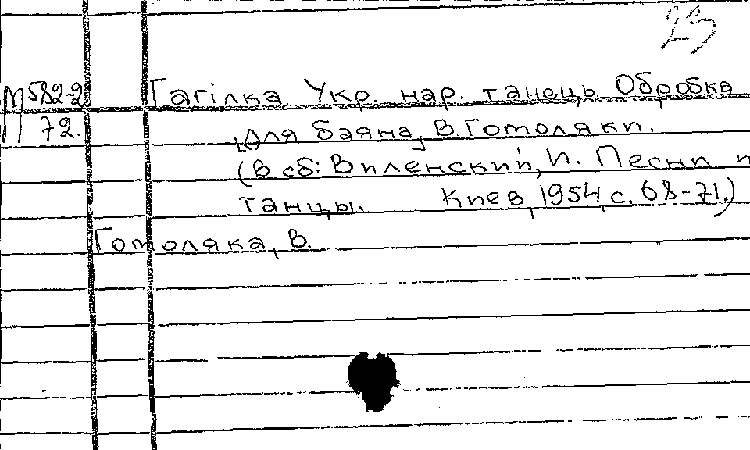 23
М582-2 Гагілка Укр. нар. танець Обробка
П 72. [для баяна] В. Гомоляки.
(В сб: Виленский, И. Песни и
танцы. Киев, 1954, с. 68-71.)
Гомоляка, В.